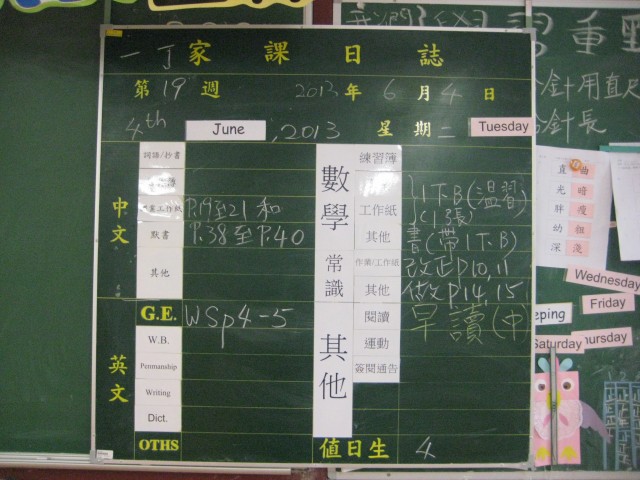 一丁家課日誌
第19週 2013年6月4日
4th June, 2013 星期二 Tuesday
中文
詞語/抄書
作業工作紙 P.19至21和
默書 P.38至P.40
其他
G.E. WSp4-5
英文
W.B.
Penmanship
Writing
Dict.
OTHS
數學
練習簿
1下B(溫習)
工作紙 (1張)
其他 書(帶1下B)
常識
作業/工作紙 改正p10,11
其他 做p14,15
其他
閱讀 早讀(中)
運動
簽閱通告
值日生 4
重
針用直尺
針長
直 曲
光 暗
胖 瘦
幼 粗
深 淺
Wednesday
Friday
eping
Saturday
ursday